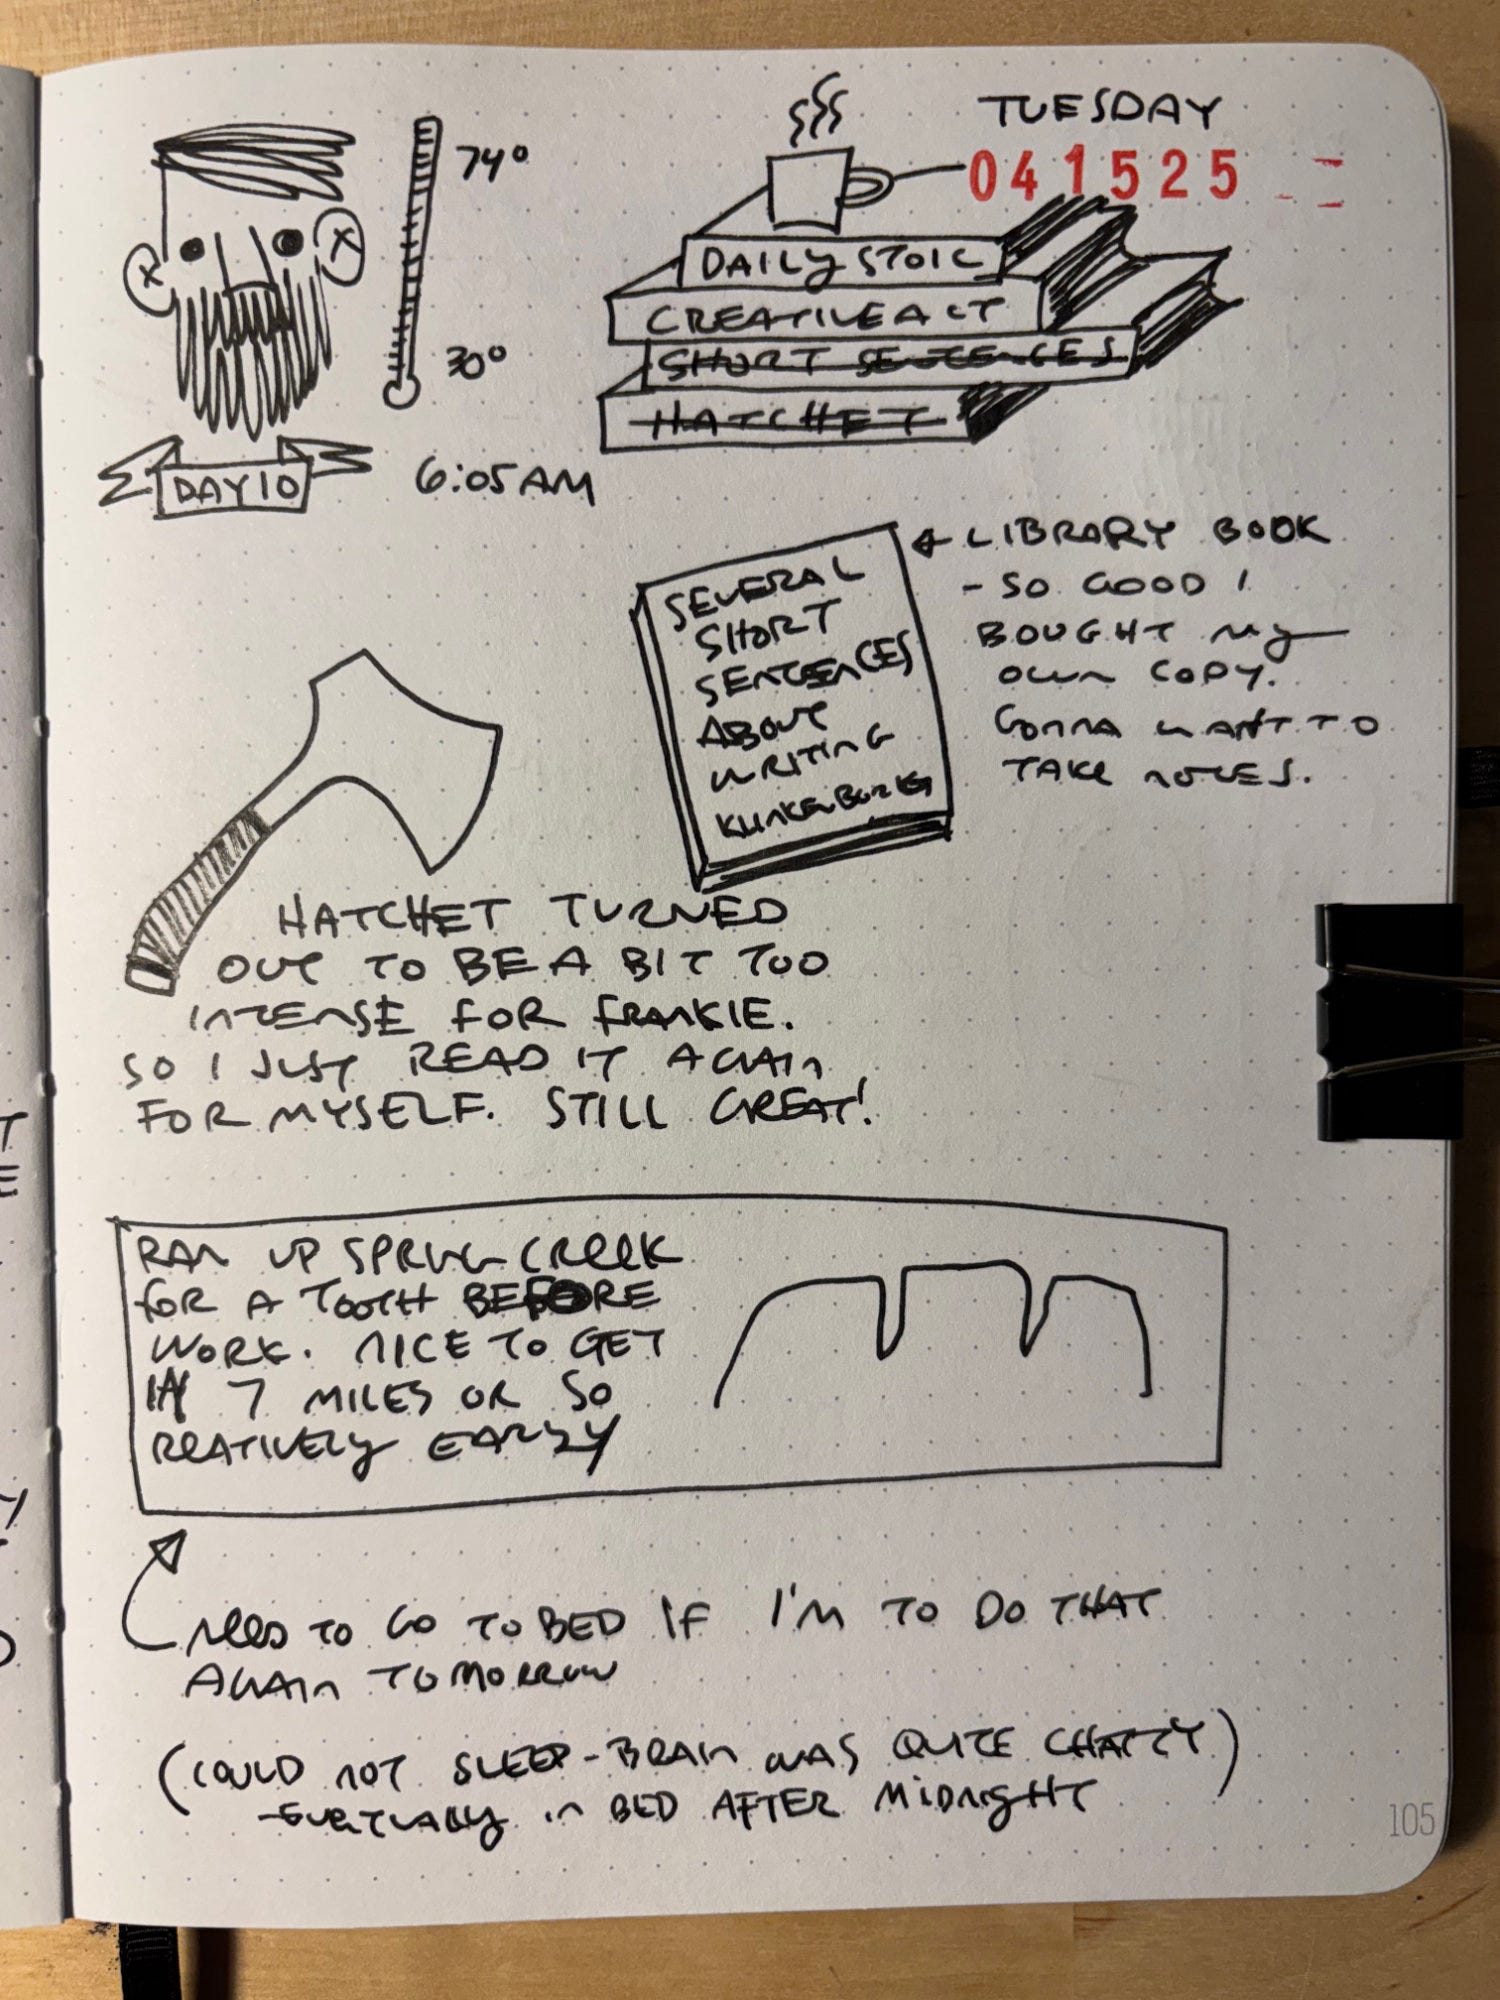 TUESDAY
041525
74°
30°
DAILY STOIC
CREATIVE ACT
SHORT SENTENCES
HATCHET
DAY 10
6:05 AM
SEVERAL
SHORT
SENTENCES
ABOUT
WRITING
KLINKENBORG
LIBRARY BOOK
- SO GOOD I
BOUGHT MY
OWN COPY.
GONNA WANT TO
TAKE NOTES.
HATCHET TURNED
OUT TO BE A BIT TOO
INTENSE FOR FRANKIE.
SO I JUST READ IT AGAIN
FOR MYSELF. STILL GREAT!
RAN UP SPRING CREEK
FOR A TOOTH BEFORE
WORK. NICE TO GET
IN 7 MILES OR SO
RELATIVELY EARLY
NEED TO GO TO BED IF I'M TO DO THAT
AGAIN TOMORROW
(COULD NOT SLEEP - BRAIN WAS QUITE CHATTY)
- EVENTUALLY IN BED AFTER MIDNIGHT
105